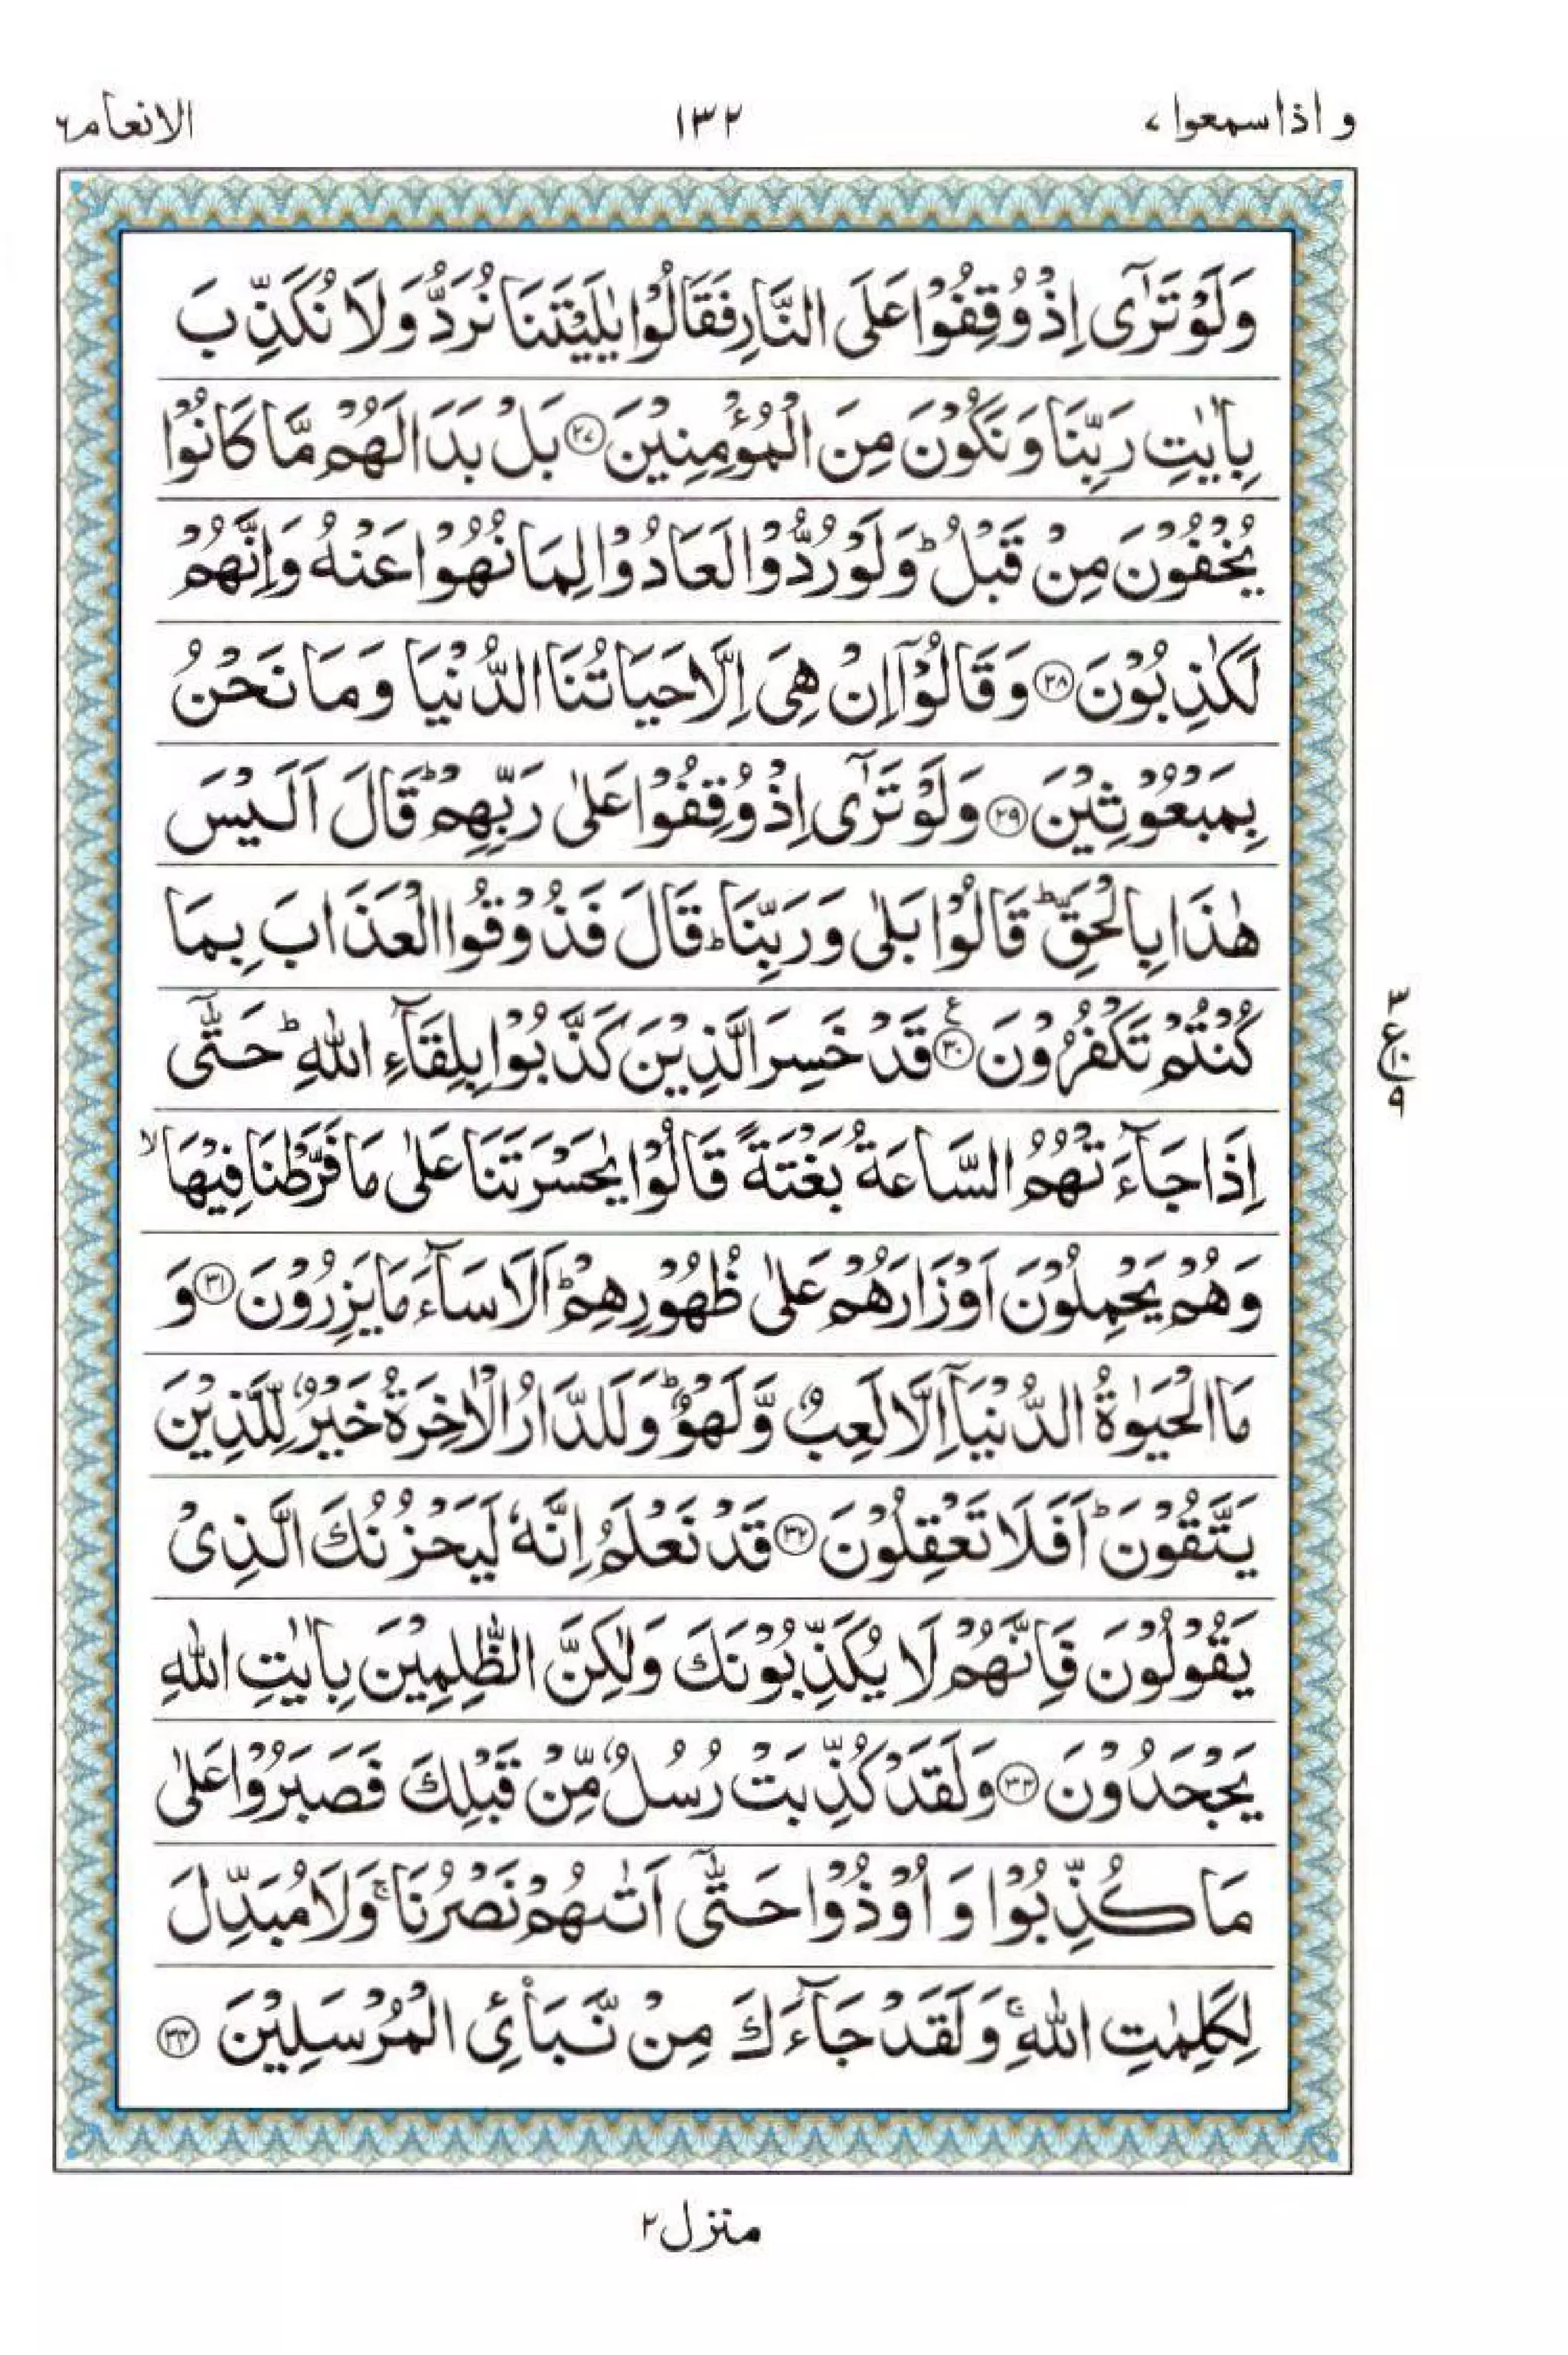 و اذا سمعوا ٧
١٣٢
الانعام ٦
وَلَوْ تَرٰٓى اِذْ وُقِفُوْا عَلَى النَّارِ فَقَالُوْا يٰلَيْتَنَا نُرَدُّ وَلَا نُكَذِّبَ
بِاٰيٰتِ رَبِّنَا وَنَكُوْنَ مِنَ الْمُؤْمِنِيْنَ ﴿٢٧﴾ بَلْ بَدَا لَهُمْ مَّا كَانُوْا
يُخْفُوْنَ مِنْ قَبْلُ ؕ وَلَوْ رُدُّوْا لَعَادُوْا لِمَا نُهُوْا عَنْهُ وَاِنَّهُمْ
لَكٰذِبُوْنَ ﴿٢٨﴾ وَقَالُوْٓا اِنْ هِىَ اِلَّا حَيَاتُنَا الدُّنْيَا وَمَا نَحْنُ
بِمَبْعُوْثِيْنَ ﴿٢٩﴾ وَلَوْ تَرٰٓى اِذْ وُقِفُوْا عَلٰى رَبِّهِمْ ؕ قَالَ اَلَيْسَ
هٰذَا بِالْحَقِّ ؕ قَالُوْا بَلٰى وَرَبِّنَا ؕ قَالَ فَذُوْقُوا الْعَذَابَ بِمَا
كُنْتُمْ تَكْفُرُوْنَ ﴿٣٠﴾ ع قَدْ خَسِرَ الَّذِيْنَ كَذَّبُوْا بِلِقَآءِ اللّٰهِ ؕ حَتّٰٓى
٣
ع ١٠
٩
اِذَا جَآءَتْهُمُ السَّاعَةُ بَغْتَةً قَالُوْا يٰحَسْرَتَنَا عَلٰى مَا فَرَّطْنَا فِيْهَا ۙ
وَهُمْ يَحْمِلُوْنَ اَوْزَارَهُمْ عَلٰى ظُهُوْرِهِمْ ؕ اَلَا سَآءَ مَا يَزِرُوْنَ ﴿٣١﴾ وَ
مَا الْحَيٰوةُ الدُّنْيَآ اِلَّا لَعِبٌ وَّلَهْوٌ ؕ وَلَلدَّارُ الْاٰخِرَةُ خَيْرٌ لِّلَّذِيْنَ
يَتَّقُوْنَ ؕ اَفَلَا تَعْقِلُوْنَ ﴿٣٢﴾ قَدْ نَعْلَمُ اِنَّهٗ لَيَحْزُنُكَ الَّذِىْ
يَقُوْلُوْنَ فَاِنَّهُمْ لَا يُكَذِّبُوْنَكَ وَلٰكِنَّ الظّٰلِمِيْنَ بِاٰيٰتِ اللّٰهِ
يَجْحَدُوْنَ ﴿٣٣﴾ وَلَقَدْ كُذِّبَتْ رُسُلٌ مِّنْ قَبْلِكَ فَصَبَرُوْا عَلٰى
مَا كُذِّبُوْا وَاُوْذُوْا حَتّٰٓى اَتٰىهُمْ نَصْرُنَا ۚ وَلَا مُبَدِّلَ
لِكَلِمٰتِ اللّٰهِ ۚ وَلَقَدْ جَآءَكَ مِنْ نَّبَاِى۟ الْمُرْسَلِيْنَ ﴿٣٤﴾
منزل ٢